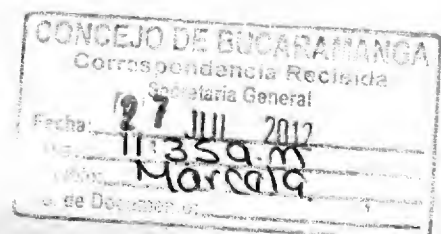 CONCEJO DE BUCARAMANGA
Correspondencia Recibida
Secretaria General
Fecha: 27 JUL 2012
11:35 a.m
Marcela